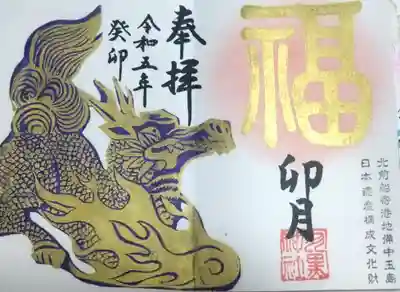 福
卯月
北前船寄港地備中玉島
日本遺産構成文化財
奉拝
令和五年
癸卯